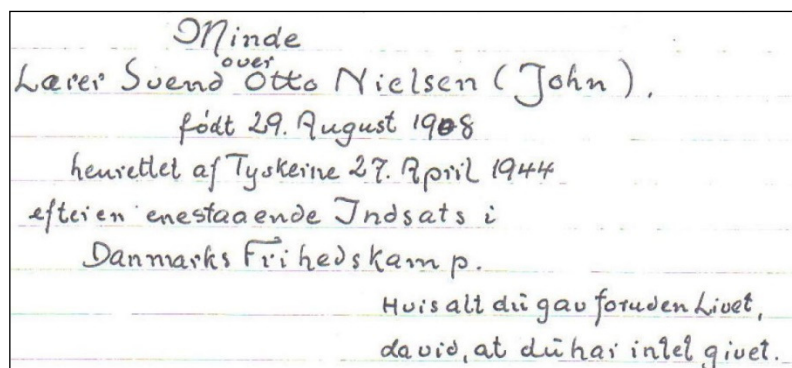 Minde
over
Lærer Svend Otto Nielsen (John).
født 29. August 1908
henrettet af Tyskerne 27. April 1944
efter en enestaaende Indsats i
Danmarks Frihedskamp.
Hvis alt du gav foruden Livet,
da vid, at du har intet givet.